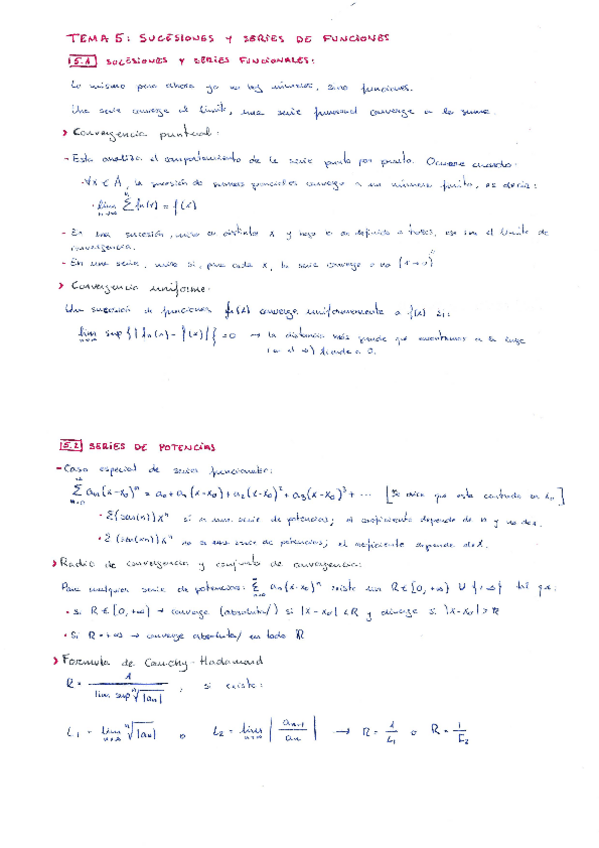 TEMA 5: SUCESIONES Y SERIES DE FUNCIONES
5.1 SUCESIONES Y SERIES FUNCIONALES:
Lo mismo pero ahora ya no hay números, sino funciones.
Una serie converge al límite, una serie funcional converge a la suma.
> Convergencia puntual:
- Esta analiza el comportamiento de la serie punto por punto. Ocurre cuando:
· ∀x ∈ A, la sucesión de sumas parciales converge a un número finito, es decir:
· lim Σ fn(x) = f(x)
- En una sucesión, miro en distinto x y hago
convergencia.
- En una serie, miro si, para cada x, la serie converge o no
> Convergencia uniforme:
Una sucesión de funciones fn(x) converge uniformemente a f(x) si:
lim sup {|fn(x) - f(x)|} = 0 → la distancia más grande que encontramos a lo largo
tiende a 0.
5.2 SERIES DE POTENCIAS
- Caso especial de series funcionales:
Σ an(x-x0)^n = a0 + a1(x-x0) + a2(x-x0)² + a3(x-x0)³ + ... [Se dice que está centrada en x0]
· Σ(sen(n))x^n si es una serie de potencias; el coeficiente depende de n y no de x.
· Σ(sen(xn))x^n no es una serie de potencias; el coeficiente depende de x.
> Radio de convergencia y conjunto de convergencia:
Para cualquier serie de potencias: Σ an(x-x0)^n existe un R ∈ [0, +∞) ∪ {+∞} tal que:
· Si R ∈ [0, +∞) → converge (absoluta/) si |x-x0| < R y diverge si |x-x0| > R
· Si R = +∞ → converge absoluta/ en todo ℝ
> Formula de Cauchy-Hadamard
R = 1 / lim sup ⁿ√|an| , si existe:
L1 = lim ⁿ√|an| o L2 = lim |an+1 / an| → R = 1/L1 o R = 1/L2